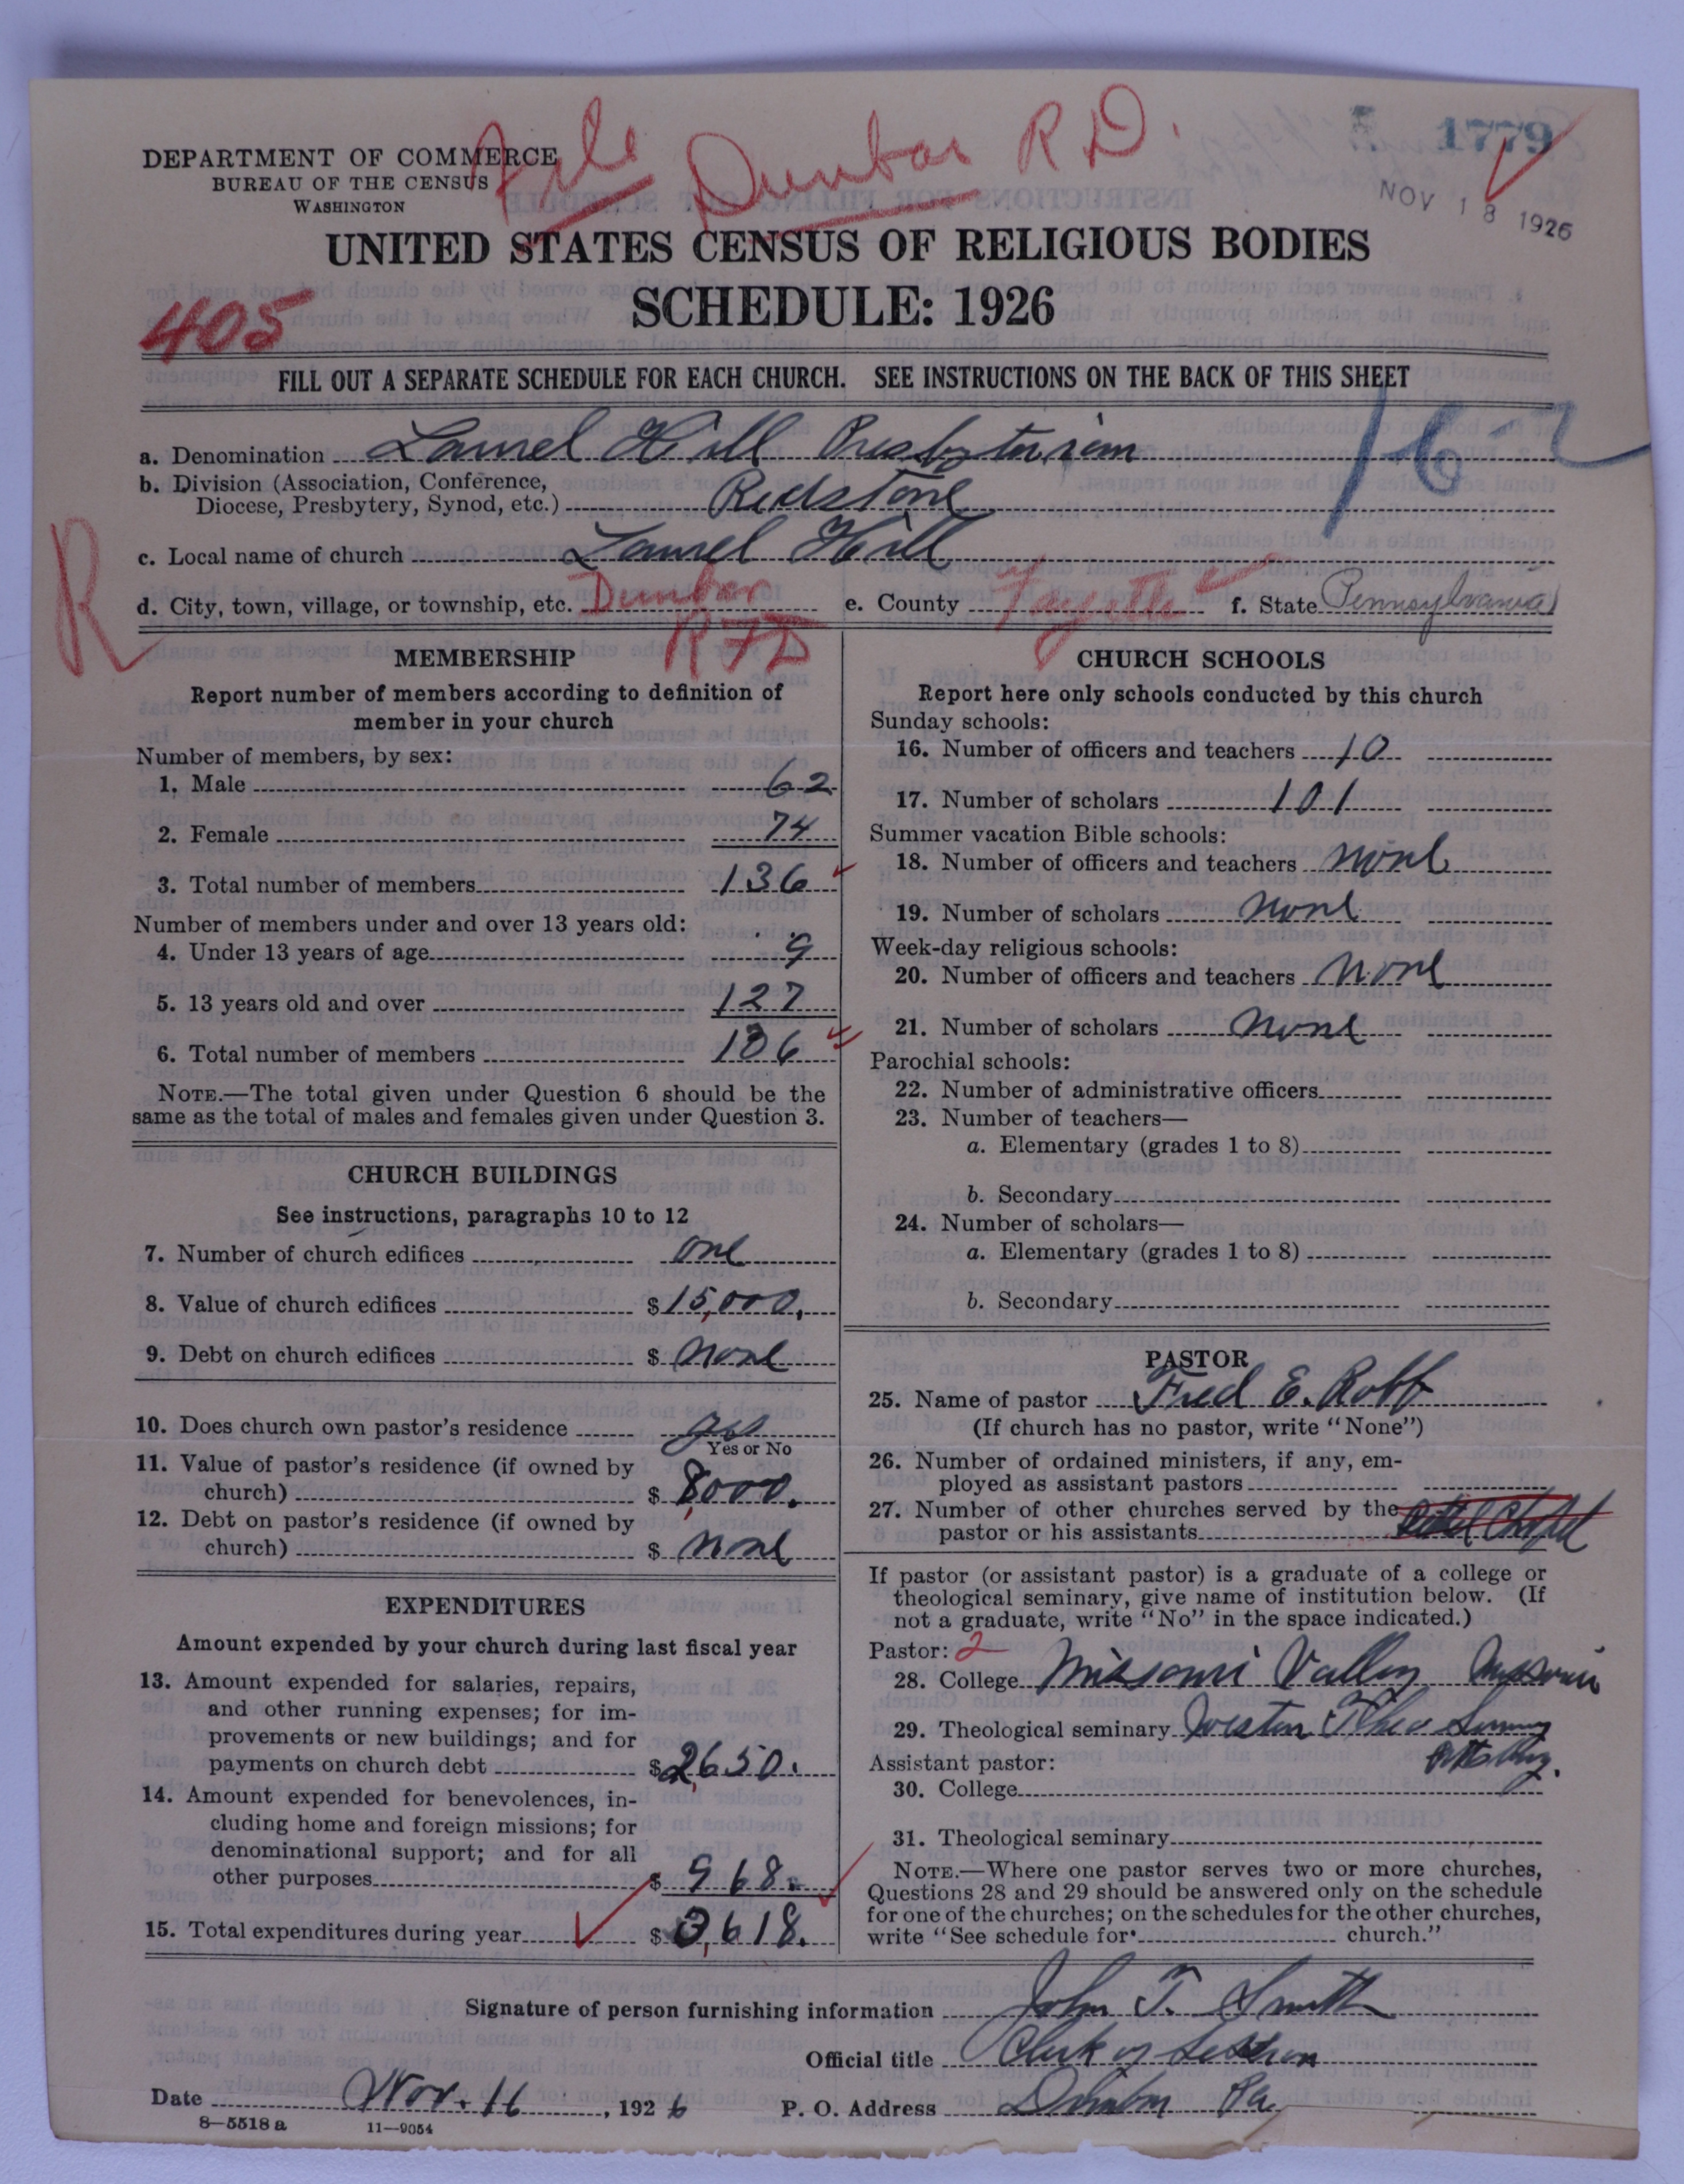 File Dunbar R D.
1779
DEPARTMENT OF COMMERCE
BUREAU OF THE CENSUS
WASHINGTON
NOV 18 1926
UNITED STATES CENSUS OF RELIGIOUS BODIES
405
SCHEDULE: 1926
FILL OUT A SEPARATE SCHEDULE FOR EACH CHURCH. SEE INSTRUCTIONS ON THE BACK OF THIS SHEET
a. Denomination Laurel Hill Presbyterian
b. Division (Association, Conference,
Diocese, Presbytery, Synod, etc.) Redstone
c. Local name of church Laurel Hill
R
d. City, town, village, or township, etc. Dunbar e. County Fayette f. State Pennsylvania
R F D
MEMBERSHIP
Report number of members according to definition of
member in your church
Number of members, by sex:
1. Male 62
2. Female 74
3. Total number of members 136
Number of members under and over 13 years old:
4. Under 13 years of age 9
5. 13 years old and over 127
6. Total number of members 136
NOTE.—The total given under Question 6 should be the
same as the total of males and females given under Question 3.
CHURCH BUILDINGS
See instructions, paragraphs 10 to 12
7. Number of church edifices one
8. Value of church edifices $ 15,000.
9. Debt on church edifices $ none
10. Does church own pastor's residence yes
Yes or No
11. Value of pastor's residence (if owned by
church) $ 8,000.
12. Debt on pastor's residence (if owned by
church) $ none
EXPENDITURES
Amount expended by your church during last fiscal year
13. Amount expended for salaries, repairs,
and other running expenses; for im-
provements or new buildings; and for
payments on church debt $ 2,650.
14. Amount expended for benevolences, in-
cluding home and foreign missions; for
denominational support; and for all
other purposes $ 968.
15. Total expenditures during year $ 3,618.
CHURCH SCHOOLS
Report here only schools conducted by this church
Sunday schools:
16. Number of officers and teachers 10
17. Number of scholars 101
Summer vacation Bible schools:
18. Number of officers and teachers none
19. Number of scholars none
Week-day religious schools:
20. Number of officers and teachers none
21. Number of scholars none
Parochial schools:
22. Number of administrative officers
23. Number of teachers—
a. Elementary (grades 1 to 8)
b. Secondary
24. Number of scholars—
a. Elementary (grades 1 to 8)
b. Secondary
PASTOR
25. Name of pastor Fred E. Robb
(If church has no pastor, write "None")
26. Number of ordained ministers, if any, em-
ployed as assistant pastors
27. Number of other churches served by the
pastor or his assistants Chapel
If pastor (or assistant pastor) is a graduate of a college or
theological seminary, give name of institution below. (If
not a graduate, write "No" in the space indicated.)
Pastor: 2
28. College Missouri Valley Missouri
29. Theological seminary Western Theo
Assistant pastor:
30. College
31. Theological seminary
NOTE.—Where one pastor serves two or more churches,
Questions 28 and 29 should be answered only on the schedule
for one of the churches; on the schedules for the other churches,
write "See schedule for church."
Signature of person furnishing information John T. Smith
Official title Clerk of Session
Date Nov. 16, 1926 P. O. Address Dunbar Pa
8—5518 a 11—9054